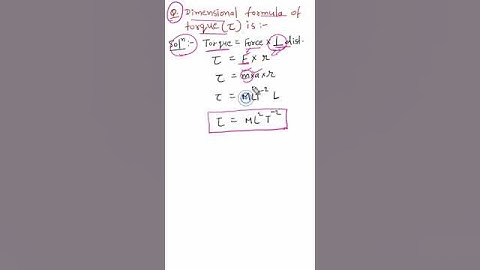 Q Dimensional formula of
torque (τ) is :-
Solⁿ:- Torque = Force × ⊥ dist.
τ = F × r
τ = m × a × r
τ = MLT⁻² L
τ = ML²T⁻²